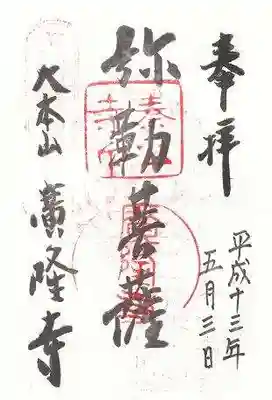 奉拝
平成十三年
五月三日
弥勒菩薩
大本山 廣隆寺